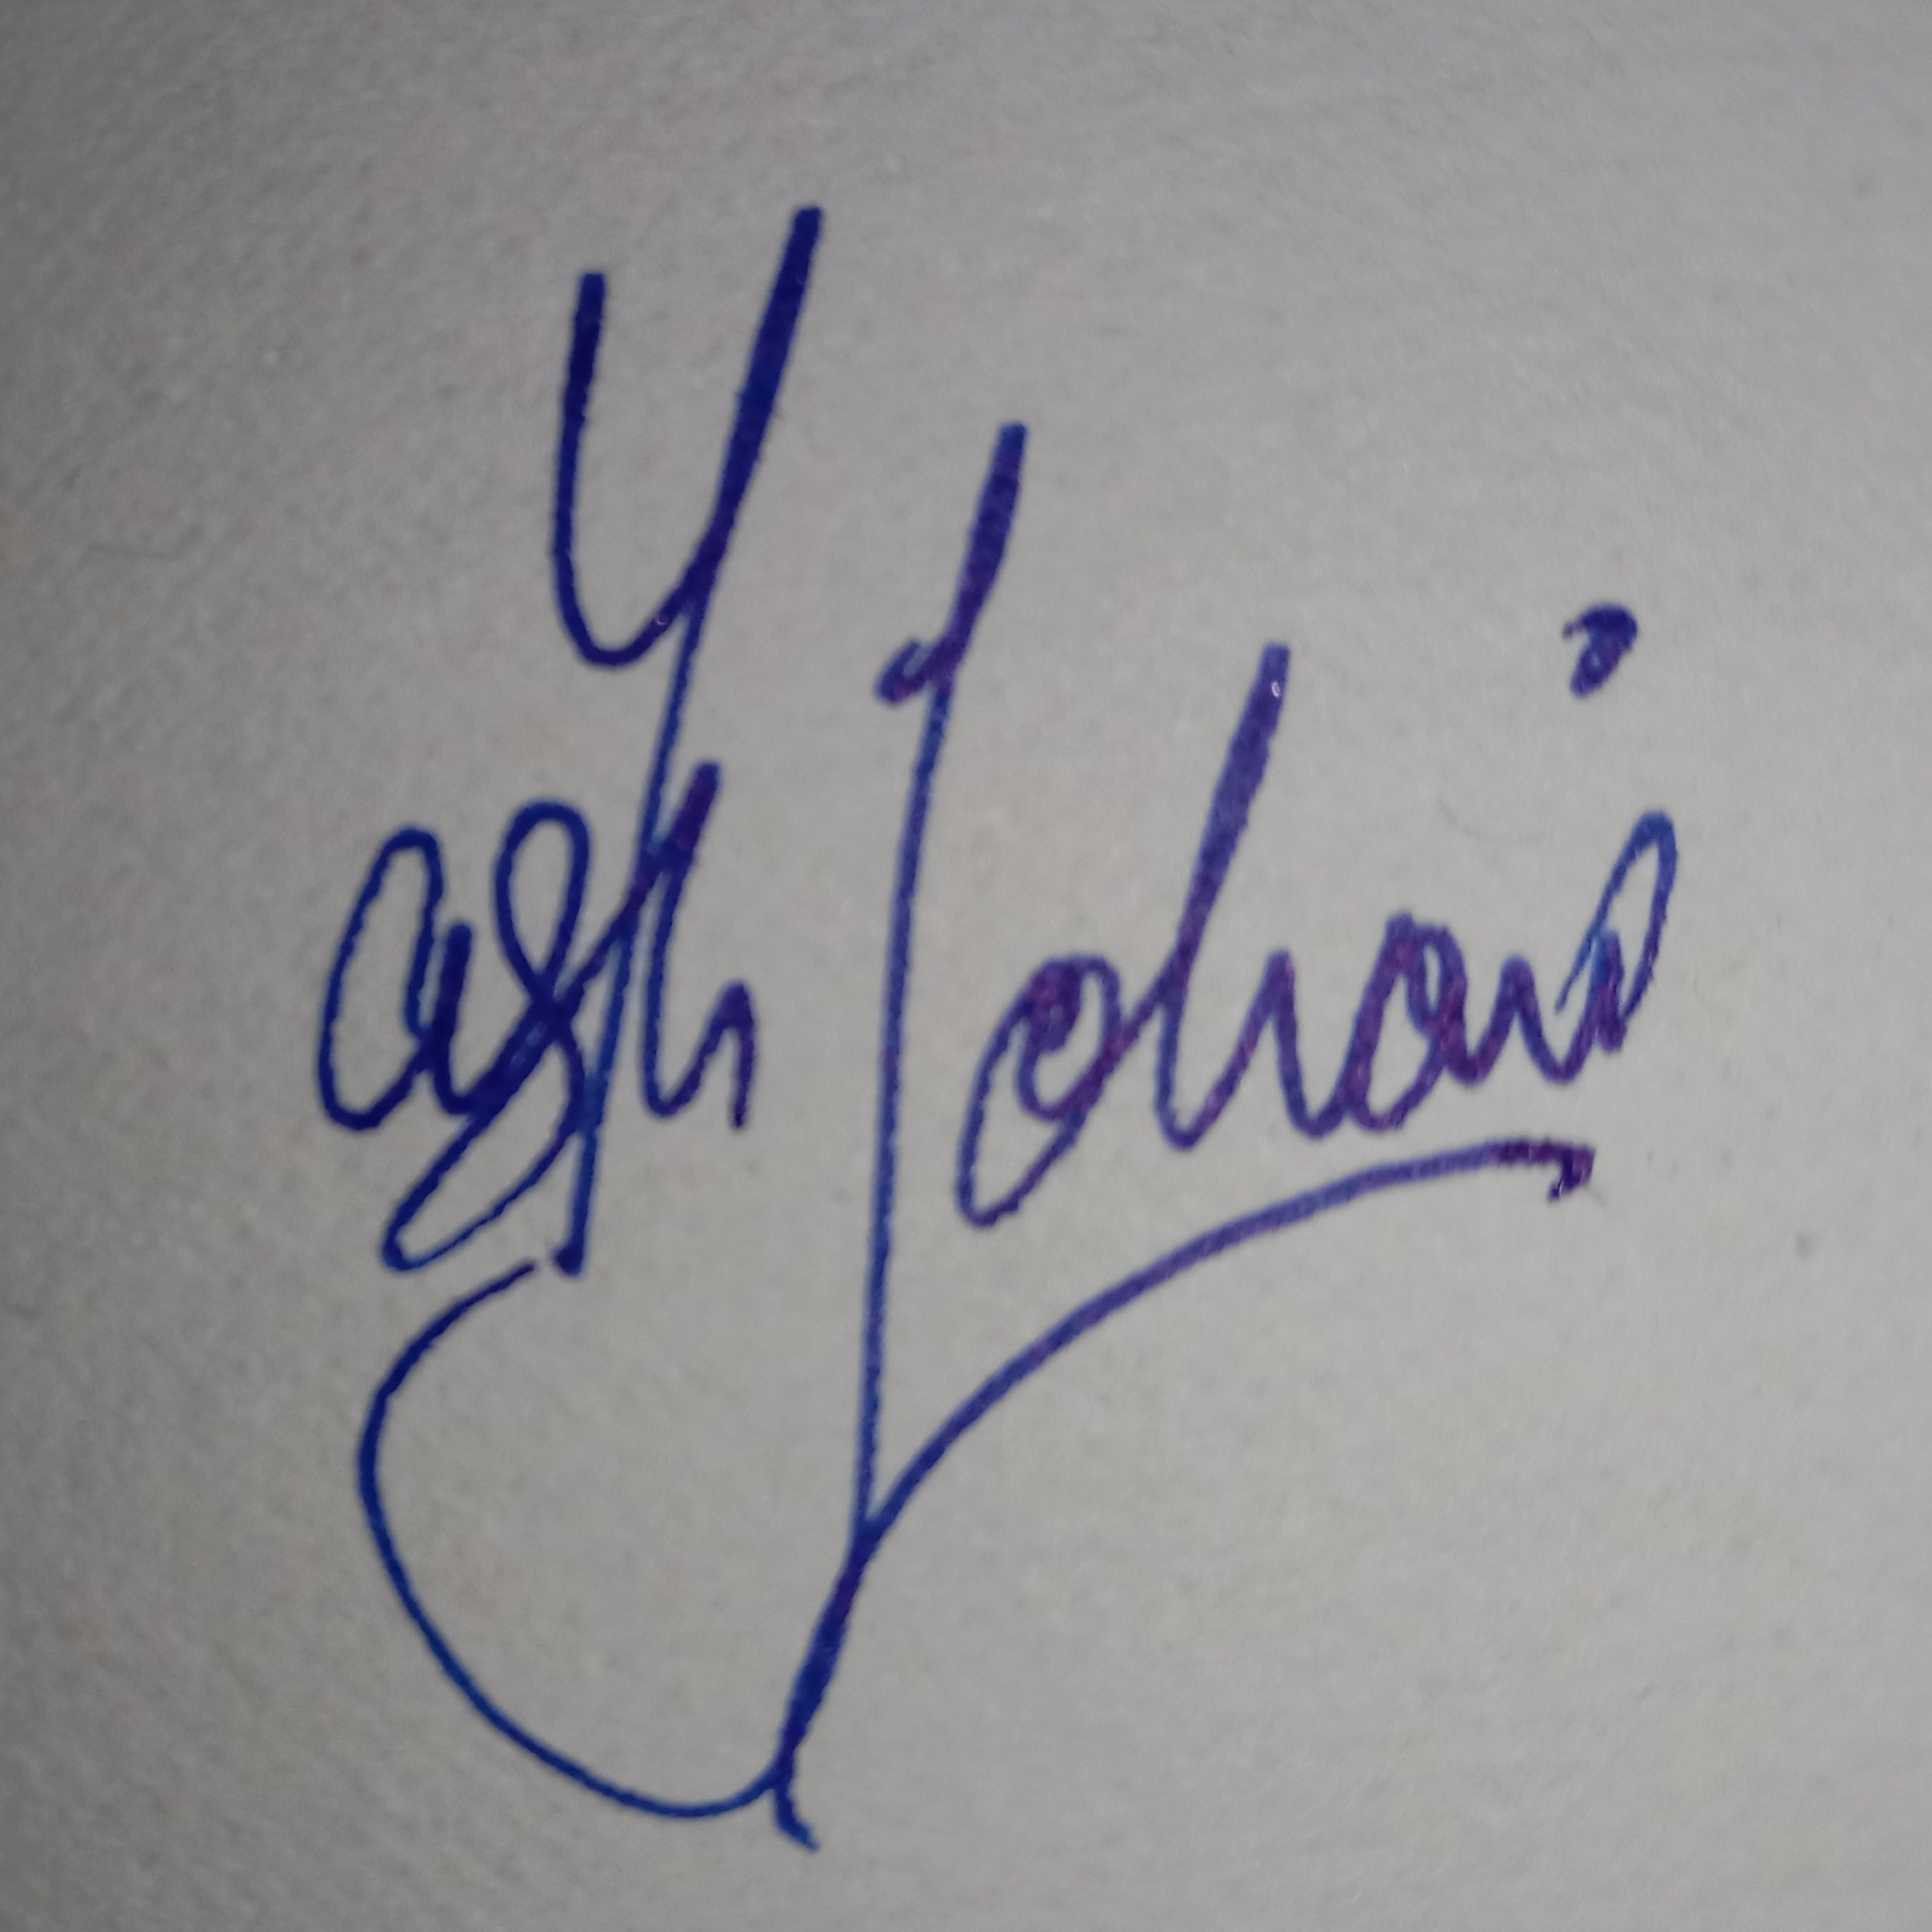 Yash Johari